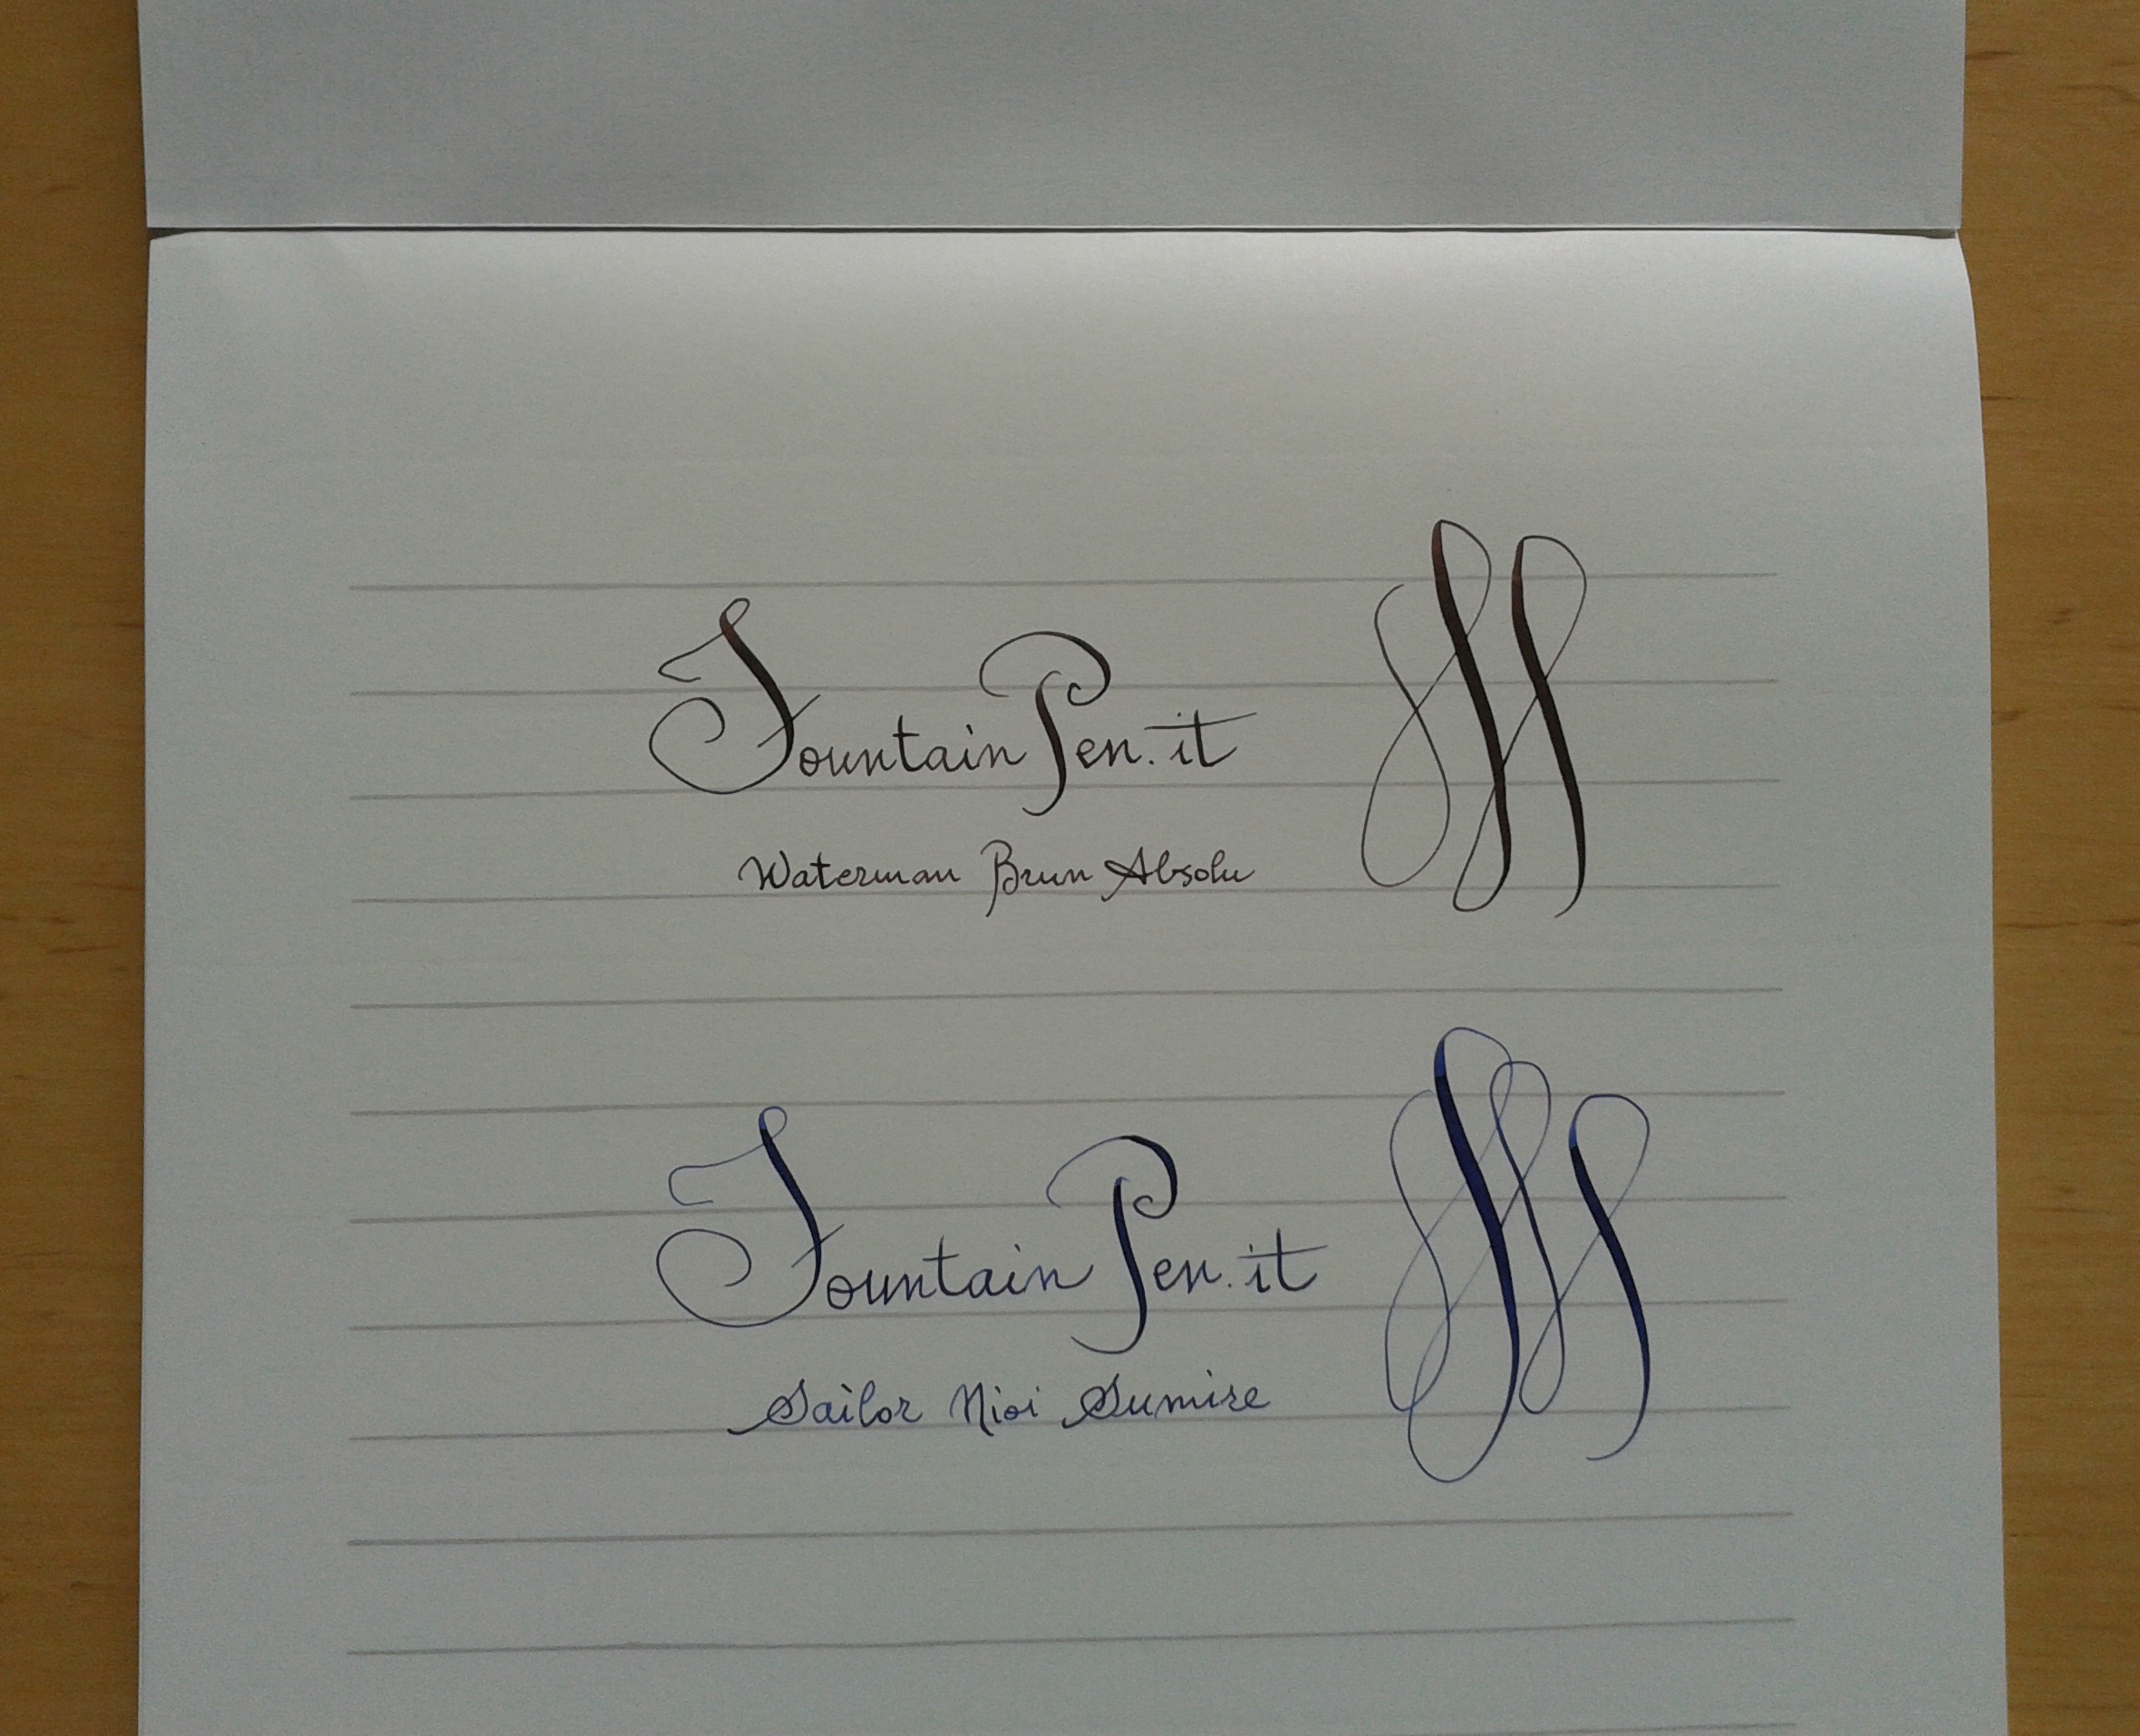 FountainPen.it
Waterman Brun Absolu
FountainPen.it
Sailor Nioi Sumire